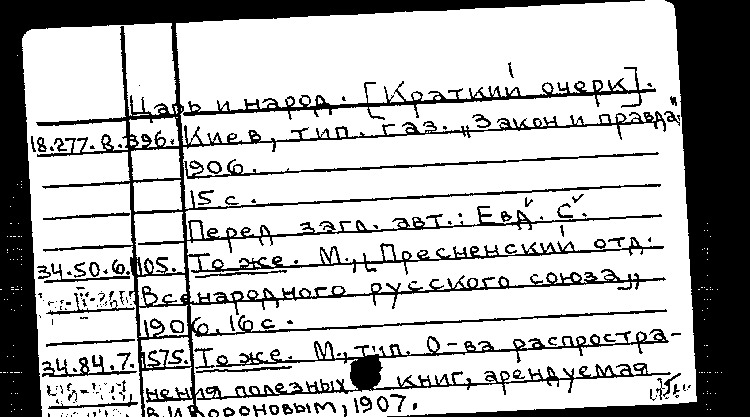 Царь и народ. [Краткий очерк].
18.277.8.396. Киев, тип. газ. „Закон и правда",
1906.
15 с.
Перед загл. авт.: Евд. С.
34.50.6.105. То же. М., [Пресненский отд.
Всенародного русского союза],
1906. 16 с.
34.84.7.1575. То же. М., тип. О-ва распростра-
нения полезных книг, арендуемая
В.И Вороновым, 1907.